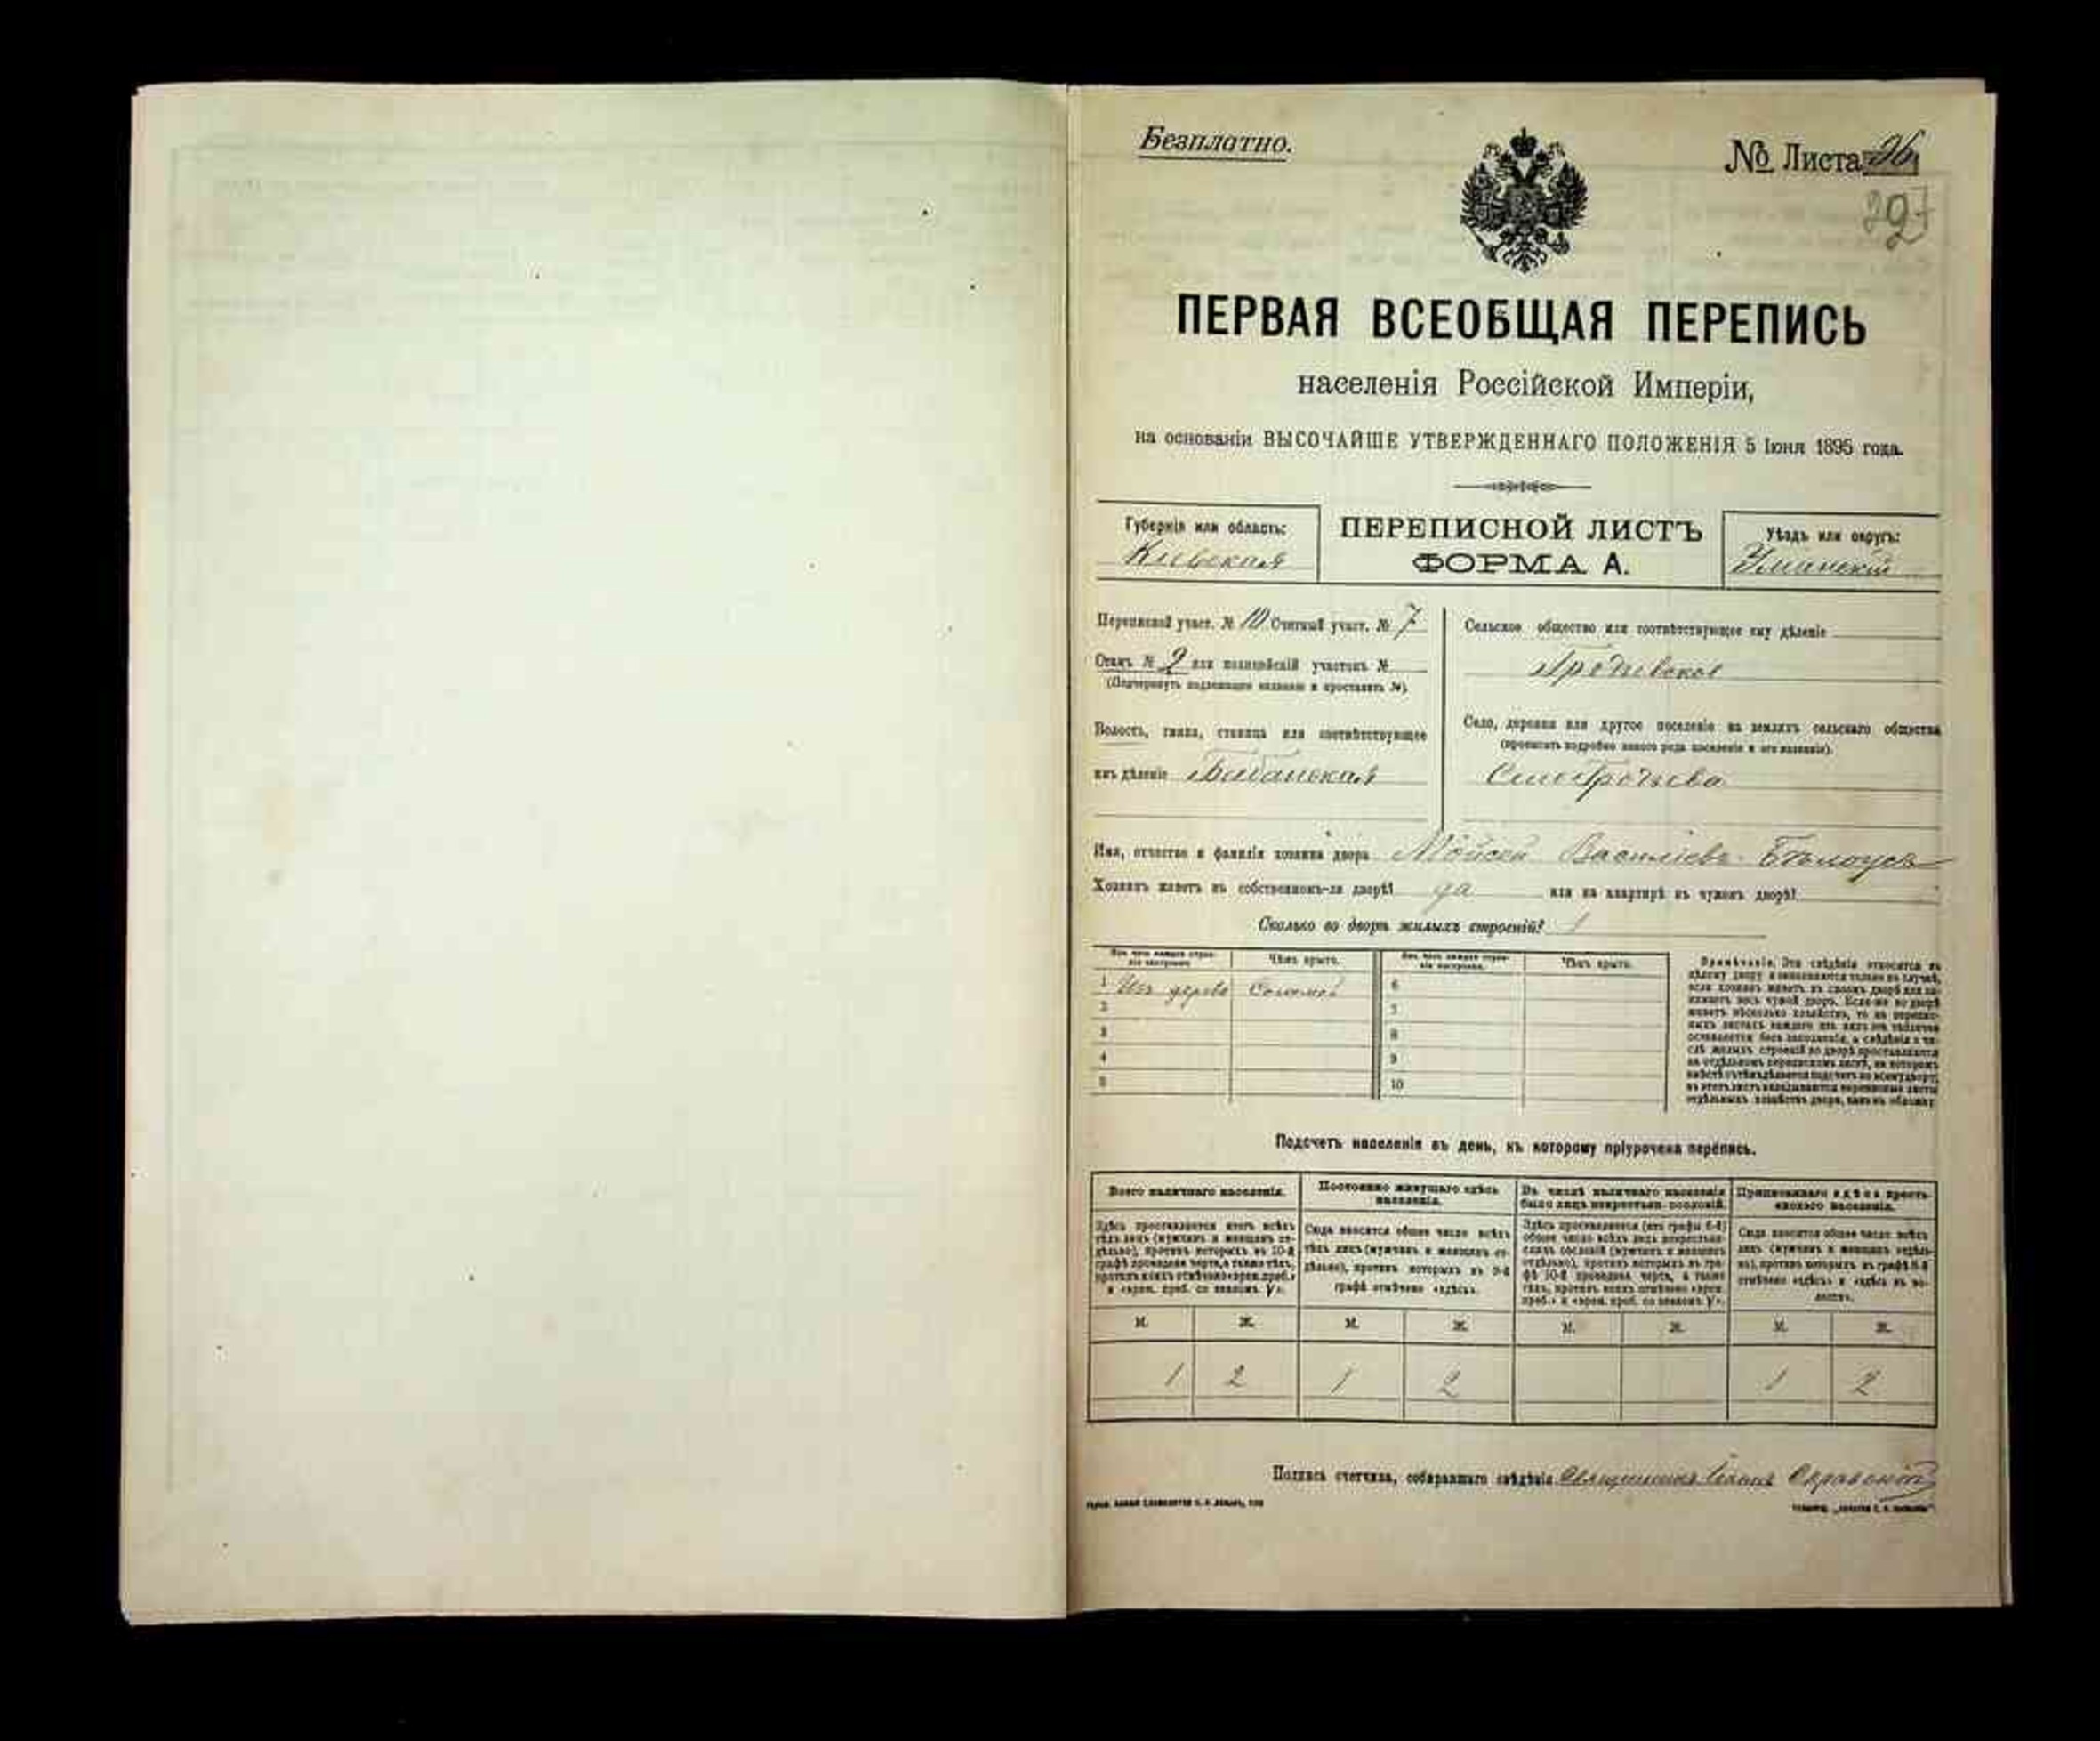 Безплатно.
№ Листа 96
297
ПЕРВАЯ ВСЕОБЩАЯ ПЕРЕПИСЬ
населенія Россійской Имперіи,
на основаніи ВЫСОЧАЙШЕ УТВЕРЖДЕННАГО ПОЛОЖЕНІЯ 5 Іюня 1895 года.
Губернія или область:
Кіевская
ПЕРЕПИСНОЙ ЛИСТЪ
ФОРМА А.
Уѣздъ или округъ:
Уманскій
Переписной участ. № 10 Счетный участ. № 7
Станъ № 2 или полицейскій участокъ №
(Подчеркнуть надлежащее названіе и проставить №).
Волость, гмина, станица или соотвѣтствующее
имъ дѣленіе Бабанская
Сельское общество или соотвѣтствующее ему дѣленіе
Село, деревня или другое поселеніе на земляхъ сельскаго общества
(прописать подробно какого рода поселеніе и его названіе).
Село
Имя, отчество и фамилія хозяина двора Мойсей Василіевъ Бѣлоусъ
Хозяинъ живетъ въ собственномъ-ли дворѣ? да или на квартирѣ въ чужомъ дворѣ?
Сколько во дворѣ жилыхъ строеній? 1
Изъ чего каждое строеніе построено. Чѣмъ крыто. Изъ чего каждое строеніе построено. Чѣмъ крыто.
1 Изъ дерева Соломой 6
2 7
3 8
4 9
5 10
Примѣчаніе. Эти свѣдѣнія относятся къ
цѣлому двору и заполняются только въ случаѣ,
если хозяинъ живетъ въ своемъ дворѣ или за-
нимаетъ весь чужой дворъ. Если-же во дворѣ
живетъ нѣсколько хозяйствъ, то на перепис-
ныхъ листахъ каждаго изъ нихъ эта табличка
оставляется безъ заполненія, а свѣдѣнія о чи-
слѣ жилыхъ строеній во дворѣ проставляются
на отдѣльномъ переписномъ листѣ, на которомъ
вмѣстѣ съ тѣмъ дѣлается подсчетъ по всему двору;
въ этотъ листъ вкладываются переписные листы
отдѣльныхъ хозяйствъ двора, какъ въ обложку.
Подсчетъ населенія въ день, къ которому пріурочена перепись.
Всего наличнаго населенія.
Здѣсь проставляется итогъ всѣхъ
тѣхъ лицъ (мужчинъ и женщинъ от-
дѣльно), противъ которыхъ въ 10-й
графѣ проведена черта, а также тѣхъ,
противъ коихъ отмѣчено «врем. преб.»
и «врем. преб. со знакомъ V».
Постоянно живущаго здѣсь
населенія.
Сюда вносится общее число всѣхъ
тѣхъ лицъ (мужчинъ и женщинъ от-
дѣльно), противъ которыхъ въ 9-й
графѣ отмѣчено «здѣсь».
Въ числѣ наличнаго населенія
было лицъ некрестьян. сословій.
Здѣсь проставляется (изъ графы 6-й)
общее число всѣхъ лицъ некрестьян-
скихъ сословій (мужчинъ и женщинъ
отдѣльно), противъ которыхъ въ гра-
фѣ 10-й проведена черта, а также
тѣхъ, противъ коихъ отмѣчено «врем.
преб.» и «врем. преб. со знакомъ V».
Приписаннаго здѣсь кресть-
янскаго населенія.
Сюда вносится общее число всѣхъ
лицъ (мужчинъ и женщинъ отдѣль-
но), противъ которыхъ въ графѣ 8-й
отмѣчено «здѣсь» и «здѣсь въ во-
лости».
М. Ж. М. Ж. М. Ж. М. Ж.
1 2 1 2 1 2
Подпись счетчика, собиравшаго свѣдѣнія Священникъ Іоаннъ